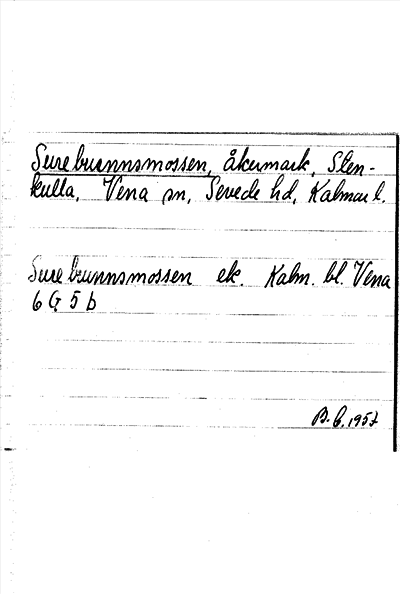 Surebrunnsmossen, åkermark, Sten-
kulla, Vena sn, Sevede hd, Kalmar l.
Surebrunnsmossen ek. Kalm. bl. Vena
6 G 5 b
1957